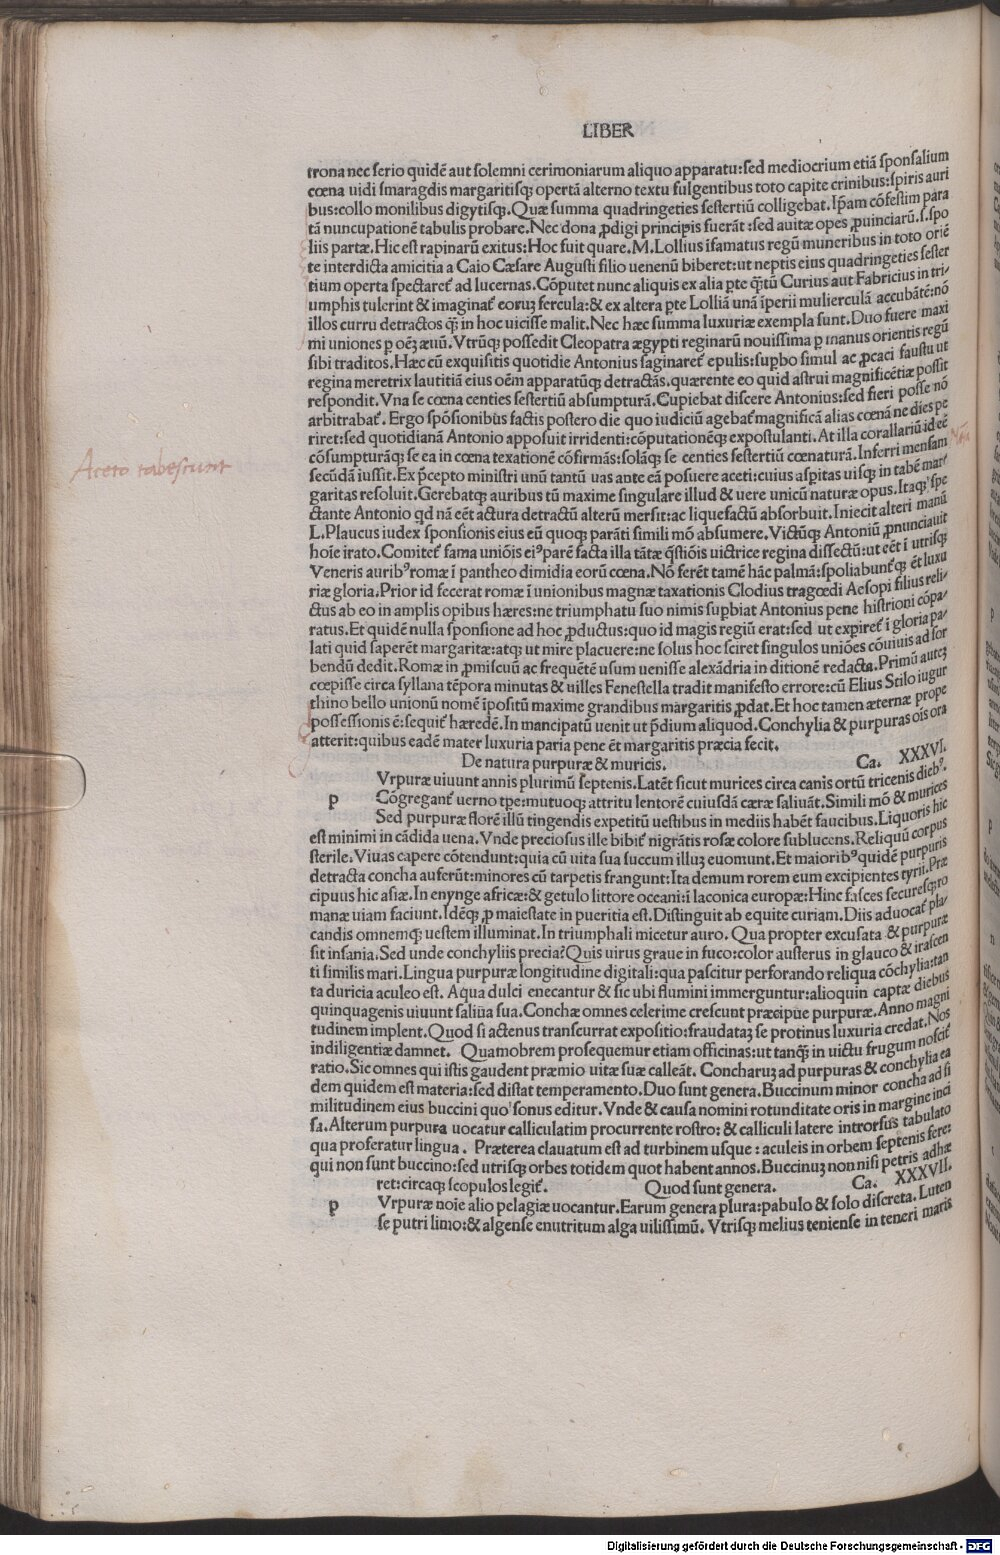 LIBER
trona nec serio quidē aut solemni cerimoniarum aliquo apparatu:sed mediocrium etiā sponsalium
cœna uidi smaragdis margaritisq; opertā alterno textu fulgentibus toto capite crinibus:spiris auri
bus:collo monilibus digytisq;. Quæ summa quadringeties sestertiū colligebat. Ipam cōfestim para
tā nuncupationē tabulis probare. Nec dona ꝓdigi principis fuerāt :sed auitæ opes ꝓuinciarū.s.spo
liis partæ. Hic est rapinarū exitus: Hoc fuit quare. M. Lollius īsamatus regū muneribus in toto oriē
te interdicta amicitia a Caio Cæsare Augusti filio uenenū biberet:ut neptis eius quadringeties sester
tium operta spectaret̄ ad lucernas. Cōputet nunc aliquis ex alia ꝑte q̄tū Curius aut Fabricius in tri/
umphis tulerint & imaginat̄ eoruꝫ fercula:& ex altera ꝑte Lolliā unā īperii mulierculā accubātē:nō
illos curru detractos q̄ in hoc uicisse malit. Nec hæc summa luxuriæ exempla sunt. Duo fuere maxi
mi uniones ꝑ oēꝫ æuū. Vtrūq; possedit Cleopatra ægypti reginarū nouissima ꝑ manus orientis regū
sibi traditos. Hæc cū exquisitis quotidie Antonius saginaret̄ epulis:supbo simul ac ꝓcaci faustu ut
regina meretrix lautitiā eius oēm apparatūq; detractās.quærente eo quid astrui magnificētiæ possit
respondit. Vna se cœna centies sestertiū absumpturā. Cupiebat discere Antonius:sed fieri posse nō
arbitrabat̄. Ergo spōsionibus factis postero die quo iudiciū agebat̄ magnificā alias cœnā ne dies pe
riret:sed quotidianā Antonio apposuit irridenti:cōputationēq; expostulanti. At illa corallariū id eē
cōsumpturāq; se ea in cœna texationē cōfirmās:solāq; se centies sestertiū cœnaturā. Inferri mensam
secūdā iussit. Ex p̄cepto ministri unū tantū uas ante eā posuere aceti:cuius aspitas uisq; in tabē mar/
garitas resoluit. Gerebatq; auribus tū maxime singulare illud & uere unicū naturæ opus. Itaq; spe
ctante Antonio qd nā eēt actura detractū alterū mersit:ac liquefactū absorbuit. Iniecit alteri manū
L. Plaucus iudex sponsionis eius eū quoq; parāti simili mō absumere. Victūq; Antoniū ꝓnunciauit
hoīe irato. Comitet̄ fama uniōis eiꝰ parē facta illa tātæ q̄stiōis uictrice regina dissectū:ut eēt ī utrisq;
Veneris auribꝰ romæ ī pantheo dimidia eorū cœna. Nō ferēt tamē hāc palmā:spoliabunt̄q; ēt luxu
riæ gloria. Prior id fecerat romæ ī unionibus magnæ taxationis Clodius tragœdi Aesopi filius reli/
ctus ab eo in amplis opibus hæres:ne triumphatu suo nimis supbiat Antonius pene histrioni cōpa/
ratus. Et quidē nulla sponsione ad hoc ꝓductus:quo id magis regiū erat:sed ut expiret̄ ī gloria pa/
lati quid saperēt margaritæ:atq; ut mire placuere:ne solus hoc sciret singulos uniōes cōuiuis ad sor
bendū dedit. Romæ in ꝓmiscuū ac frequētē usum uenisse alexādria in ditionē redacta. Primū auteꝫ
cœpisse circa syllana tēpora minutas & uilles Fenestella tradit manifesto errore:cū Elius Stilo iugur
thino bello unionū nomē īpositū maxime grandibus margaritis ꝓdat. Et hoc tamen æternæ prope
possessionis ē:sequit̄ hæredē. In mancipatū uenit ut p̄dium aliquod. Conchylia & purpuras oīs ora
atterit:quibus eadē mater luxuria paria pene ēt margaritis præcia fecit.
De natura purpuræ & muricis. Ca. XXXVI.
Vrpuræ uiuunt annis plurimū septenis. Latēt sicut murices circa canis ortū tricenis diebꝰ.
p Cōgregant̄ uerno tpe:mutuoq; attritu lentorē cuiusdā cæræ saliuāt. Simili mō & murices
Sed purpuræ florē illū tingendis expetitū uestibus in mediis habēt faucibus. Liquoris hic
est minimi in cādida uena. Vnde preciosus ille bibit̄ nigrātis rosæ colore sublucens. Reliquū corpus
sterile. Viuas capere cōtendunt:quia cū uita sua succum illuꝫ euomunt. Et maioribꝰ quidē purpuris
detracta concha auferūt:minores cū tarpetis frangunt: Ita demum rorem eum excipientes tyrii. Præ
cipuus hic asiæ. In enynge africæ:& getulo littore oceani:ī laconica europæ: Hinc fasces securesq;ro
manæ uiam faciunt. Idēq; ꝓ maiestate in pueritia est. Distinguit ab equite curiam. Diis aduocat̄ pla/
candis omnemq; uestem illuminat. In triumphali micetur auro. Qua propter excusata & purpuræ
sit insania. Sed unde conchyliis precia? Quis uirus graue in fuco:color austerus in glauco & irascen
ti similis mari. Lingua purpuræ longitudine digitali:qua pascitur perforando reliqua cōchylia:tan
ta duricia aculeo est. Aqua dulci enecantur & sic ubi flumini immerguntur:alioquin captæ diebus
quinquagenis uiuunt saliua sua. Conchæ omnes celerime crescunt præcipue purpuræ. Anno magni
tudinem implent. Quod si actenus transcurrat expositio:fraudataꝫ se protinus luxuria credat. Nos
indiligentiæ damnet. Quamobrem prosequemur etiam officinas:ut tanq̄ in uictu frugum noscit̄
ratio. Sic omnes qui istis gaudent præmio uitæ suæ calleāt. Concharuꝫ ad purpuras & conchylia ea
dem quidem est materia:sed distat temperamento. Duo sunt genera. Buccinum minor concha ad si
militudinem eius buccini quo' sonus editur. Vnde & causa nomini rotunditate oris in margine inci
sa. Alterum purpura uocatur calliculatim procurrente rostro: & calliculi latere introrsus tabulato
qua proferatur lingua. Præterea clauatum est ad turbinem usque : aculeis in orbem septenis fere:
qui non sunt buccino:sed utrisq; orbes totidem quot habent annos. Buccinuꝫ non nisi petris adhæ
ret:circaq; scopulos legit̄. Quod sunt genera. Ca. XXXVII.
p Vrpuræ noīe alio pelagiæ uocantur. Earum genera plura:pabulo & solo discreta. Luten
se putri limo:& algense enutritum alga uilissimū. Vtrisq; melius teniense in teneri maris
Aceto tabescunt
Digitalisierung gefördert durch die Deutsche Forschungsgemeinschaft - DFG